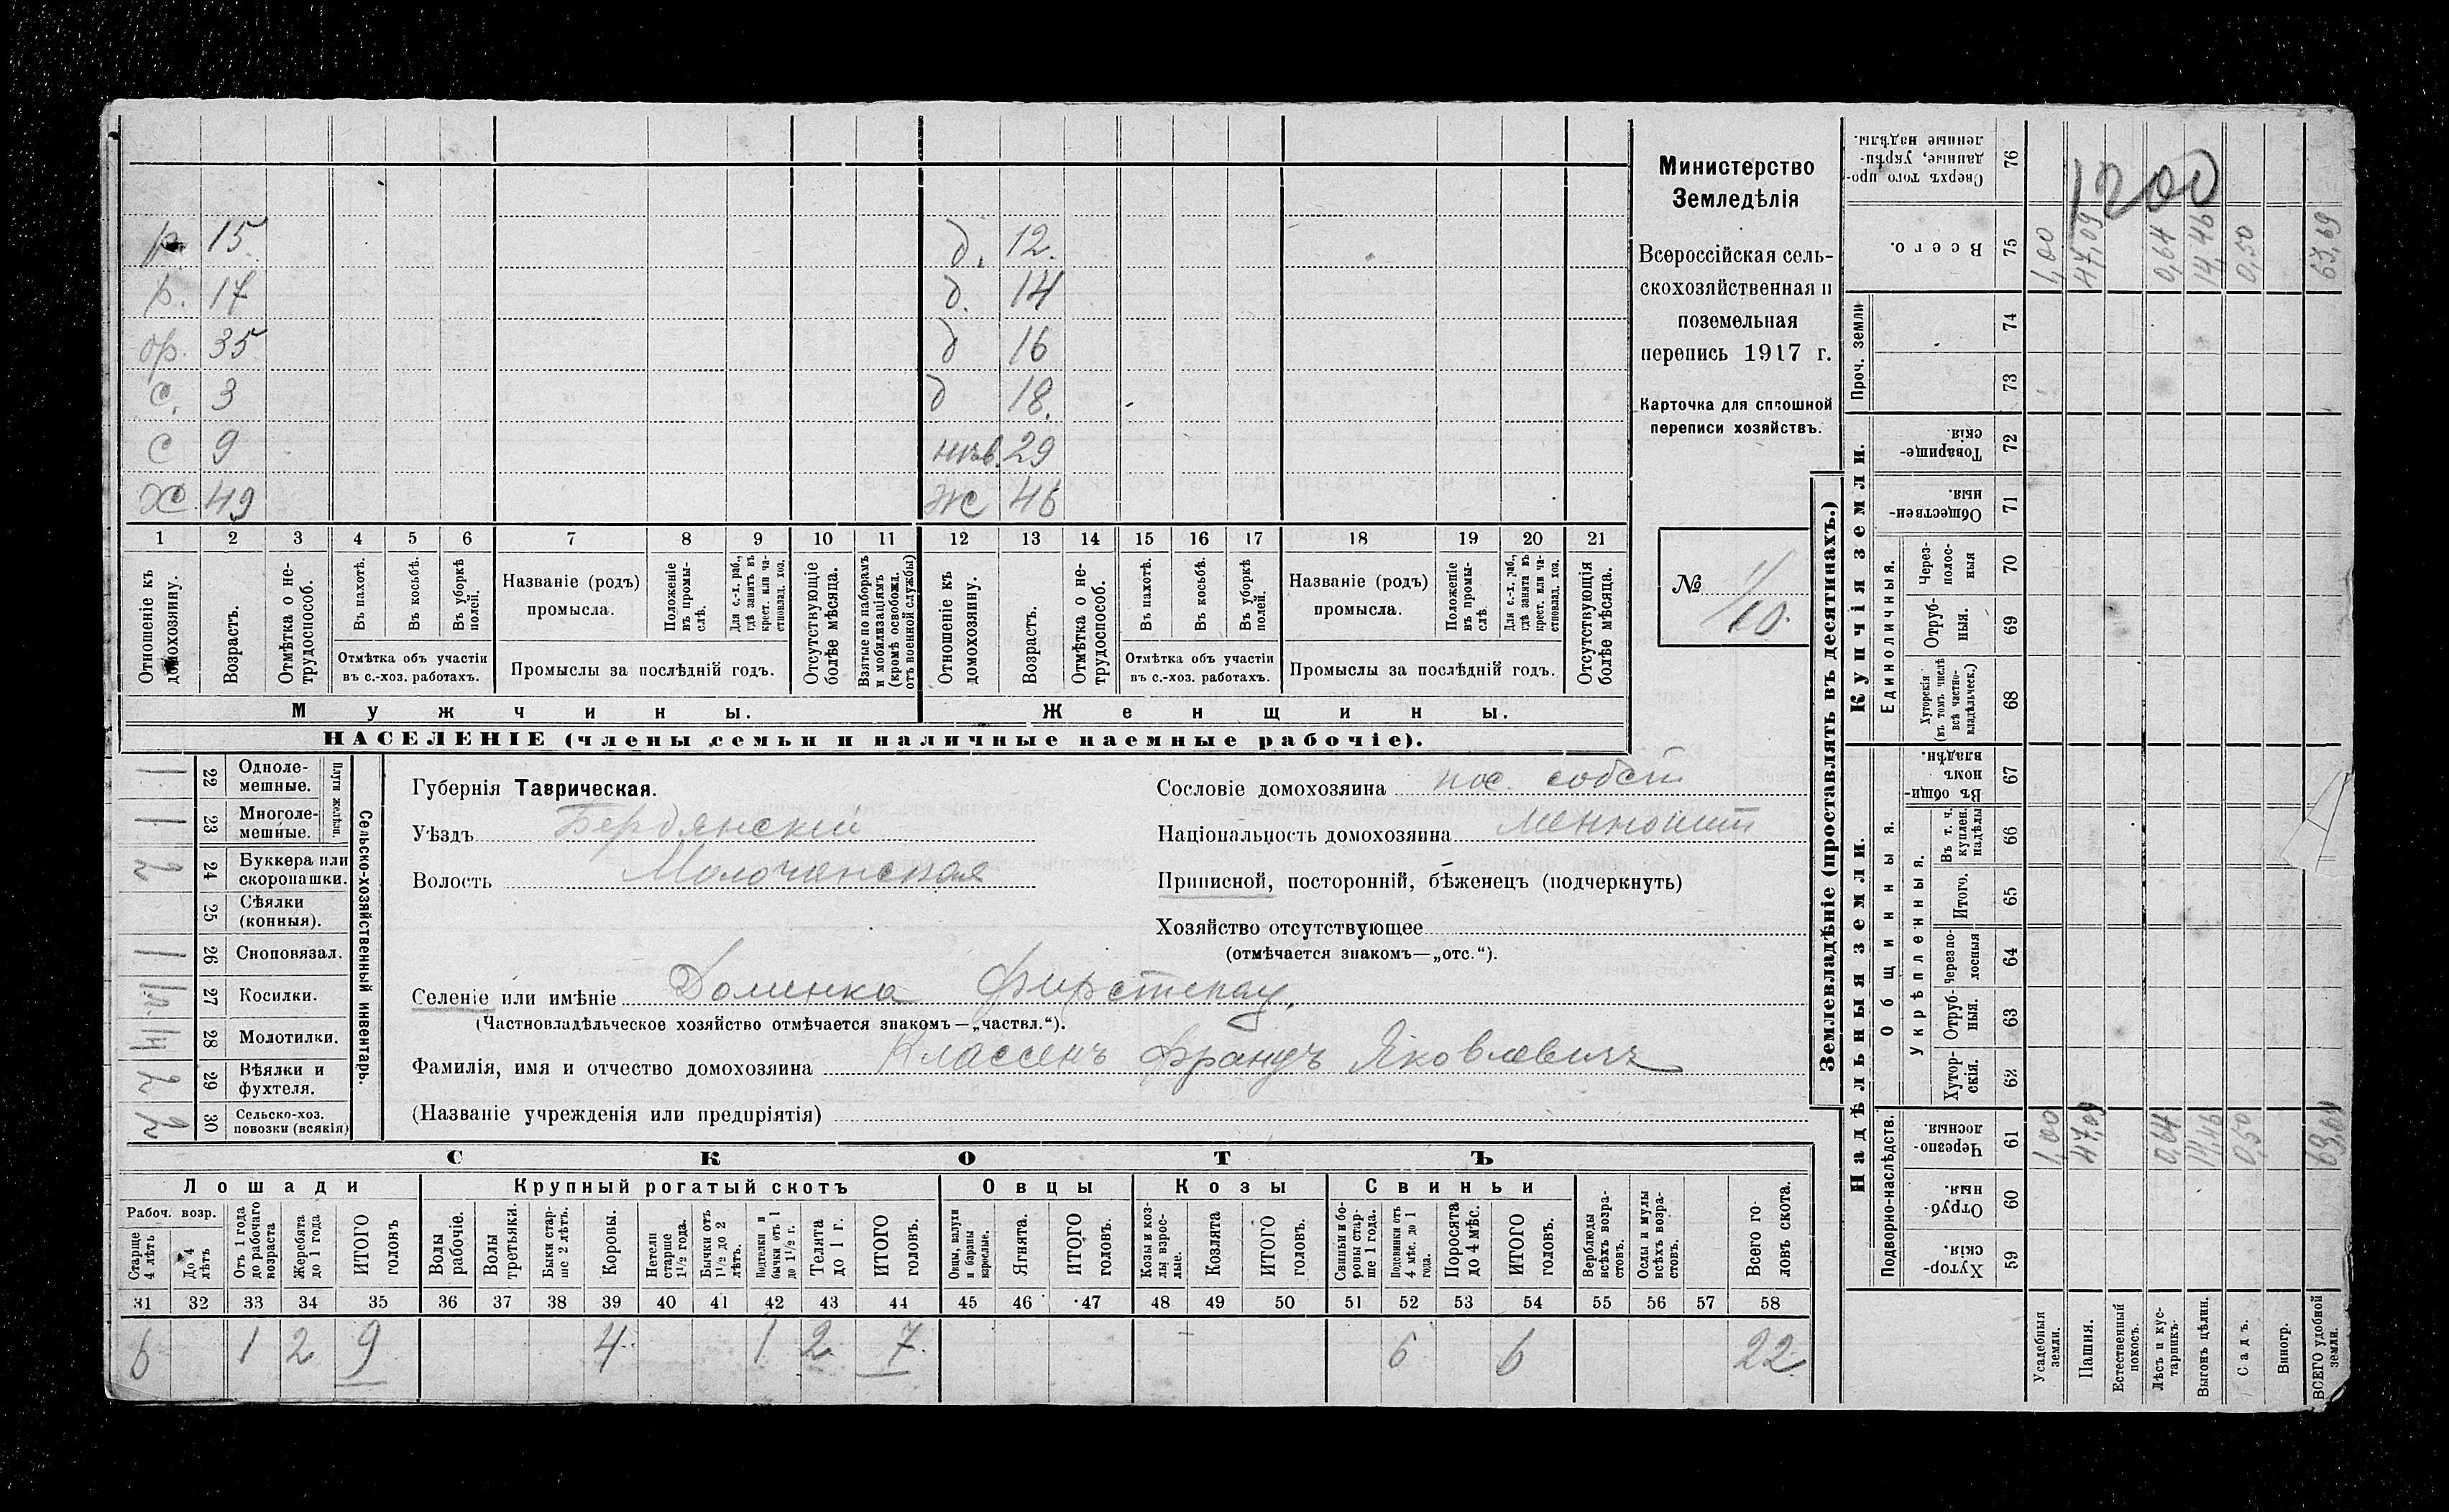 р. 15
р. 17
бр. 35
с. 3
с 9
х 49
д. 12.
д. 14
д 16
д 18.
жс 46
1 2 3 4 5 6 7 8 9 10 11 12 13 14 15 16 17 18 19 20 21
Отношеніе къ домохозяину.
Возрастъ.
Отмѣтка о не-
трудоспособ.
Въ пахотѣ.
Въ косьбѣ.
Въ уборкѣ полей.
Отмѣтка объ участіи
въ с.-хоз. работахъ.
Названіе (родъ)
промысла.
Положеніе въ промы-
слѣ.
Для с.-х. раб., гдѣ занятъ въ крест. или ча-
стновлад. хоз.
Промыслы за послѣдній годъ.
Отсутствующіе болѣе мѣсяца.
Взятые по наборамъ и мобилизаціямъ (кромѣ освобожд. отъ военной службы)
Отношеніе къ домохозяину.
Возрастъ.
Отмѣтка о не-
трудоспособ.
Въ пахотѣ.
Въ косьбѣ.
Въ уборкѣ полей.
Отмѣтка объ участіи
въ с.-хоз. работахъ.
Названіе (родъ)
промысла.
Положеніе въ промы-
слѣ
Для с.-х. раб., гдѣ занята въ крест. или ча-
стновлад. хоз.
Промыслы за послѣдній годъ.
Отсутствующія болѣе мѣсяца.
Мужчины.
Женщины.
НАСЕЛЕНІЕ (члены семьи и наличные наемные рабочіе).
Министерство
Земледѣлія
Всероссійская сель-
скохозяйственная и
поземельная
перепись 1917 г.
Карточка для сплошной
переписи хозяйствъ.
№
10.
1 22 Одноле-
мешные.
1 23 Многоле-
мешные.
Плуги желѣзн.
2 24 Буккера или
скоропашки.
25 Сѣялки
(конныя).
1 26 Сноповязал.
27 Косилки.
28 Молотилки.
2 29 Вѣялки и
фухтеля.
2 30 Сельско-хоз.
повозки (всякія)
Сельско-хозяйственный инвентарь.
Губернія Таврическая.
Уѣздъ Бердянскій
Волость Молочанская
Сословіе домохозяина пос. собст
Національность домохозяина Меннонит
Приписной, посторонній, бѣженецъ (подчеркнуть)
Хозяйство отсутствующее
(отмѣчается знакомъ—„отс.“).
Селеніе или имѣніе Долинка Фирстенау.
(Частновладѣльческое хозяйство отмѣчается знакомъ—„частвл.“).
Фамилія, имя и отчество домохозяина Классенъ Францъ Яковлевичъ
(Названіе учрежденія или предпріятія)
СКОТЪ
Лошади
Крупный рогатый скотъ
Овцы
Козы
Свиньи
Рабоч. возр.
Старше 4 лѣтъ
До 4 лѣтъ
Отъ 1 года до рабочаго возраста
Жеребята до 1 года
ИТОГО головъ
Волы рабочіе.
Волы третьяки.
Быки стар-
ше 2 лѣтъ.
Коровы.
Нетели старше 1½ года.
Бычки отъ 1½ до 2 лѣтъ.
Подтелки и бычки отъ 1 до 1½ г.
Телята до 1 г.
ИТОГО головъ.
Овцы, валухи и бараны взрослые.
Ягнята.
ИТОГО головъ.
Козы и коз-
лы взрос-
лые.
Козлята
ИТОГО головъ.
Свиньи и бо-
ровы стар-
ше 1 года.
Подсвинки отъ 4 мѣс. до 1 года.
Поросята до 4 мѣс.
ИТОГО головъ.
Верблюды всѣхъ возра-
стовъ.
Ослы и мулы всѣхъ возра-
стовъ.
Всего го-
ловъ скота.
31 32 33 34 35 36 37 38 39 40 41 42 43 44 45 46 47 48 49 50 51 52 53 54 55 56 57 58
6 1 2 9 4 1 2 7 6 6 22
Землевладѣніе (проставлять въ десятинахъ.)
Надѣльныя земли.
Купчія земли.
Проч. земли
Подворно-наслѣдств.
Общинныя.
Укрѣпленныя.
Единоличныя.
59 Хутор-
скія.
60 Отруб-
ныя.
61 Черезпо-
лосныя.
62 Хутор-
скія.
63 Отруб-
ныя.
64 Черезпо-
лосныя
65 Итого.
66 Въ т. ч. куплен. надѣлы
67 Въ общи-
номъ владѣн.
68 Хуторскія (въ томъ числѣ всѣ частно-
владѣльческ.)
69 Отруб-
ныя.
70 Через-
полос-
ныя
71 Обществен-
ныя.
72 Товарище-
скія.
73
74
75 Всего.
76 Сверхъ того про-
данные, укрѣп-
ленные надѣлы.
1200
Усадебныя земли. 1,00 1,00
Пашня. 47,09 47,09
Естественный покосъ.
Лѣсъ и кус-
тарникъ. 0,64 0,64
Выгонъ цѣлин. 14,46 14,46
Садъ. 0,50 0,50
Виногр.
ВСЕГО удобной земли. 63,69 63,69